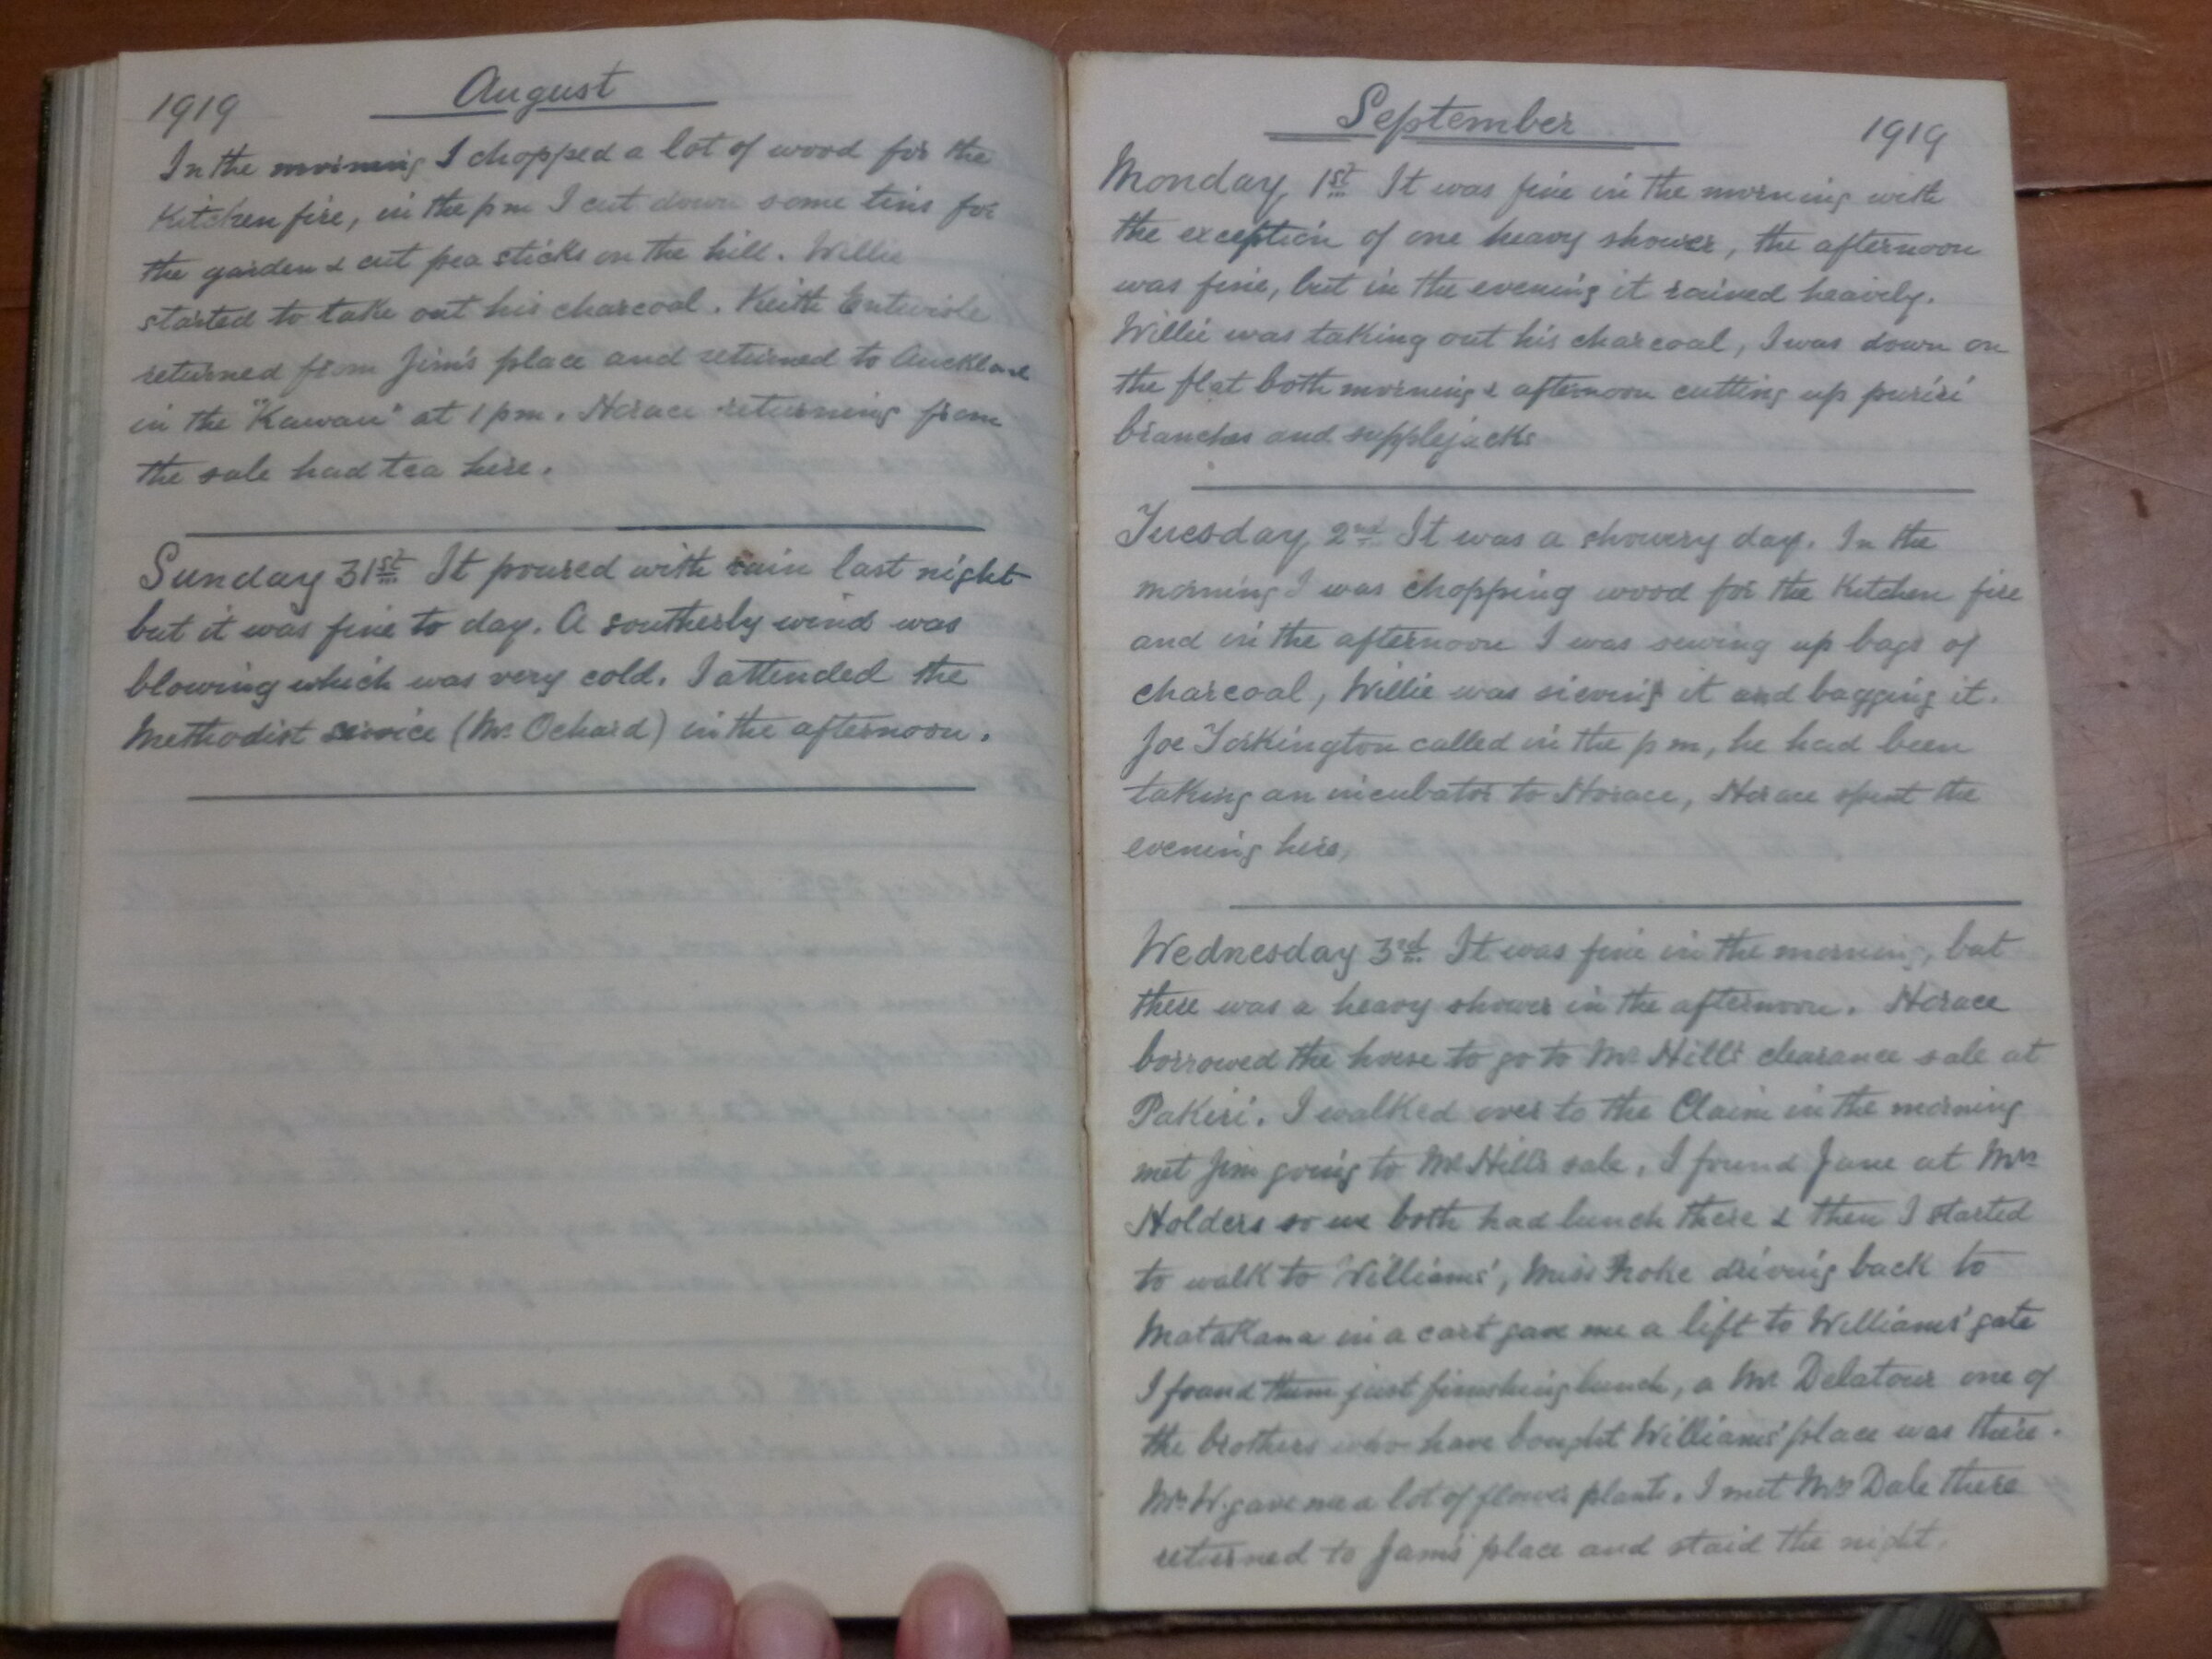 1919
August
In the morning I chopped a lot of wood for the
Kitchen fire, in the pm I cut down some tins for
the garden & cut pea sticks on the hill. Willie
started to take out his charcoal. Keith Entwisle
returned from Jim's place and returned to Auckland
in the "Kawau" at 1 pm. Horace returning from
the sale had tea here.
Sunday 31st It poured with rain last night
but it was fine to day. A southerly wind was
blowing which was very cold. I attended the
Methodist service (Mr Ochard) in the afternoon.
September
1919
Monday 1st It was fine in the morning with
the exception of one heavy shower, the afternoon
was fine, but in the evening it rained heavily.
Willie was taking out his charcoal, I was down on
the flat both morning & afternoon cutting up puriri
branches and supplejacks
Tuesday 2nd It was a showery day. In the
morning I was chopping wood for the Kitchen fire
and in the afternoon I was sewing up bags of
charcoal, Willie was sieving it and bagging it.
Joe Torkington called in the pm, he had been
taking an incubator to Horace, Horace spent the
evening here,
Wednesday 3rd It was fine in the morning, but
there was a heavy shower in the afternoon. Horace
borrowed the horse to go to Mr Hill's clearance sale at
Pakiri. I walked over to the Claim in the morning
met Jim going to Mr Hill's sale, I found Jane at Mrs
Holders so we both had lunch there & then I started
to walk to Williams', Miss driving back to
Matakana in a cart gave me a lift to Williams' gate
I found them just finishing lunch, a Mr Delatour one of
the brothers who have bought Williams' place was there.
Mrs W. gave me a lot of flower plants. I met Mrs Dale there
returned to place and staid the night.